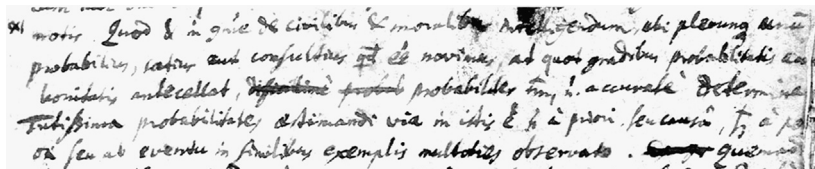 notis Quod & in gñe de civilibus & moralibus intelligendum, ubi plerunq unum
probabilius, satius aut consultius qd eē novimus, at quot gradibus probabilitatis
bonitatis antecellat, probabiliter tm, n. accurate determinare
Tutissima probabilitates æstimandi via in istis ē h à priori seu causâ, à
ori seu ab eventu in similibus exemplis multoties observato.